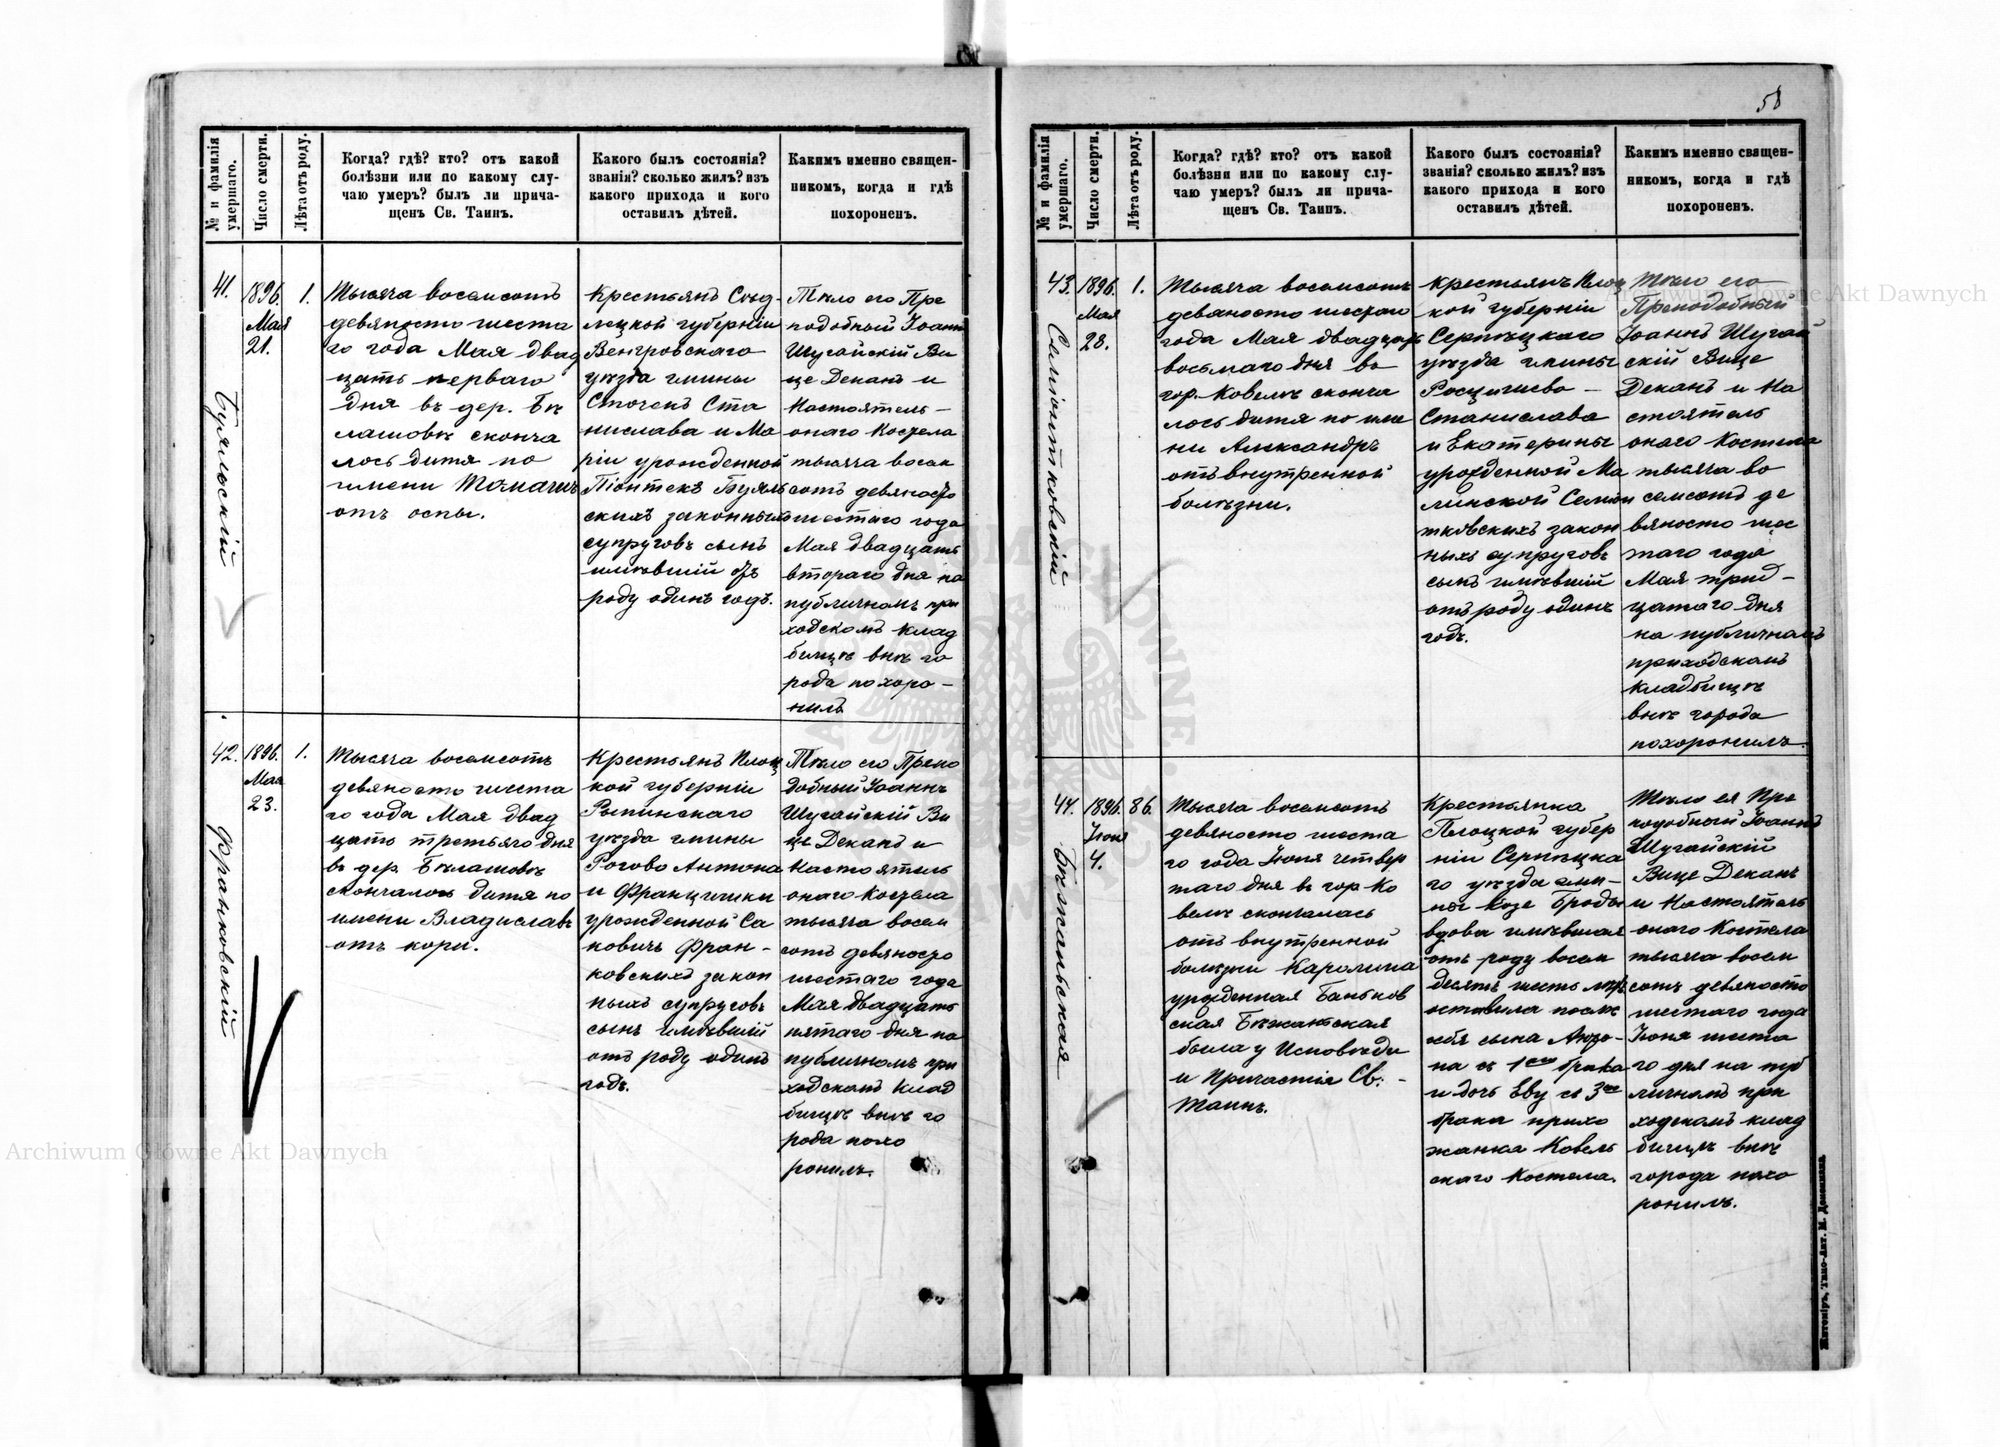 58
№ и фамилія умершаго.
Число смерти.
Лѣта отъ роду.
Когда? гдѣ? кто? отъ какой
болѣзни или по какому слу-
чаю умеръ? былъ ли прича-
щенъ Св. Таинъ.
Какого былъ состоянія?
званія? сколько жилъ? изъ
какого прихода и кого
оставилъ дѣтей.
Какимъ именно священ-
никомъ, когда и гдѣ
похороненъ.
41.
Буяльскій
1896.
Мая
21.
1.
Тысяча восемсотъ
девяносто шеста
го года Мая двад
цать перваго
дня въ дер. Бѣ
лашовѣ сконча
лось дитя по
имени Томашъ
отъ оспы.
Крестьянъ Сѣд-
лецкой губерніи
Венгровскаго
уѣзда гмины
Сточекъ Ста
нислава и Ма
ріи урожденной
Піонтекъ Буяль
скихъ законныхъ
супруговъ сынъ
имѣвшій отъ
роду одинъ годъ.
Тѣло его Пре
подобный Іоаннъ
Шугайскій Ви
це Деканъ и
Настоятель-
онаго Костела
тысяча восем
сотъ девяносто
шестаго года
Мая двадцать
втораго дня на
публичномъ при
ходскомъ клад
бищѣ внѣ го
рода похоро-
нилъ
42.
Франковскій
1896.
Мая
23.
1.
Тысяча восемсотъ
девяносто шеста
го года Мая двад
цать третьяго дня
въ дер. Бѣлашовѣ
скончалось дитя по
имени Владиславъ
отъ кори.
Крестьянъ Плоц
кой губерніи
Рыпинскаго
уѣзда гмины
Рогово Антона
и Францишки
урожденной Са
ковичъ Фран-
ковскихъ закон
ныхъ супруговъ
сынъ имѣвшій
отъ роду одинъ
годъ.
Тѣло его Препо
добный Іоаннъ
Шугайскій Ви
це Деканъ и
Настоятель
онаго Костела
тысяча восем
сотъ девяносто
шестаго года
Мая двадцать
пятаго дня на
публичномъ при
ходскомъ клад
бищѣ внѣ го
рода похо
ронилъ.
№ и фамилія умершаго.
Число смерти.
Лѣта отъ роду.
Когда? гдѣ? кто? отъ какой
болѣзни или по какому слу-
чаю умеръ? былъ ли прича-
щенъ Св. Таинъ.
Какого былъ состоянія?
званія? сколько жилъ? изъ
какого прихода и кого
оставилъ дѣтей.
Какимъ именно священ-
никомъ, когда и гдѣ
похороненъ.
43.
Семіонтковскій
1896.
Мая
28.
1.
Тысяча восемсотъ
девяносто шестаго
года Мая двадцать
восьмаго дня въ
гор. Ковелѣ сконча
лось дитя по име
ни Александръ
отъ внутренной
болѣзни.
Крестьянъ Плоц
кой губерніи
Серпецкаго
уѣзда гмины
Росцишево-
Станислава
и Екатерины
урожденной Ма
линской Семіон
тковскихъ закон
ныхъ супруговъ
сынъ имѣвшій
отъ роду одинъ
годъ.
Тѣло его
Преподобный
Іоаннъ Шугай
скій Вице
Деканъ и На
стоятель
онаго Костела
тысяча во
семсотъ де
вяносто шес
таго года
Мая трид-
цатаго дня
на публичномъ
приходскомъ
кладбищѣ
внѣ города
похоронилъ.
44.
Бѣжаньская
1896.
Іюня
4.
86.
Тысяча восемсотъ
девяносто шеста
го года Іюня четвер
таго дня въ гор Ко
велѣ скончалась
отъ внутренной
болѣзни Каролина
урожденная Баньков
ская Бѣжанская
была у Исповѣди
и Причастія Св: -
Таинъ.
Крестьянка
Плоцкой губер
ніи Серпецка
го уѣзда гми-
ны Козе Броды
вдова имѣвшая
отъ роду восем
десять шесть лѣтъ
оставила послѣ
себя сына Анто-
на съ 1го брака
и дочь Еву съ 3го
брака прихо
жанка Ковель
скаго Костела.
Тѣло ея Пре
подобный Іоаннъ
Шугайскій
Вице Деканъ
и Настоятель
онаго Костела
тысяча восем
сотъ девяносто
шестаго года
Іюня шеста
го дня на пуб
личномъ при
ходскомъ клад
бищѣ внѣ
города похо
ронилъ.
Житоміръ, Типо-Лит. М. Дененмана.
Archiwum Główne Akt Dawnych
Archiwum Główne Akt Dawnych